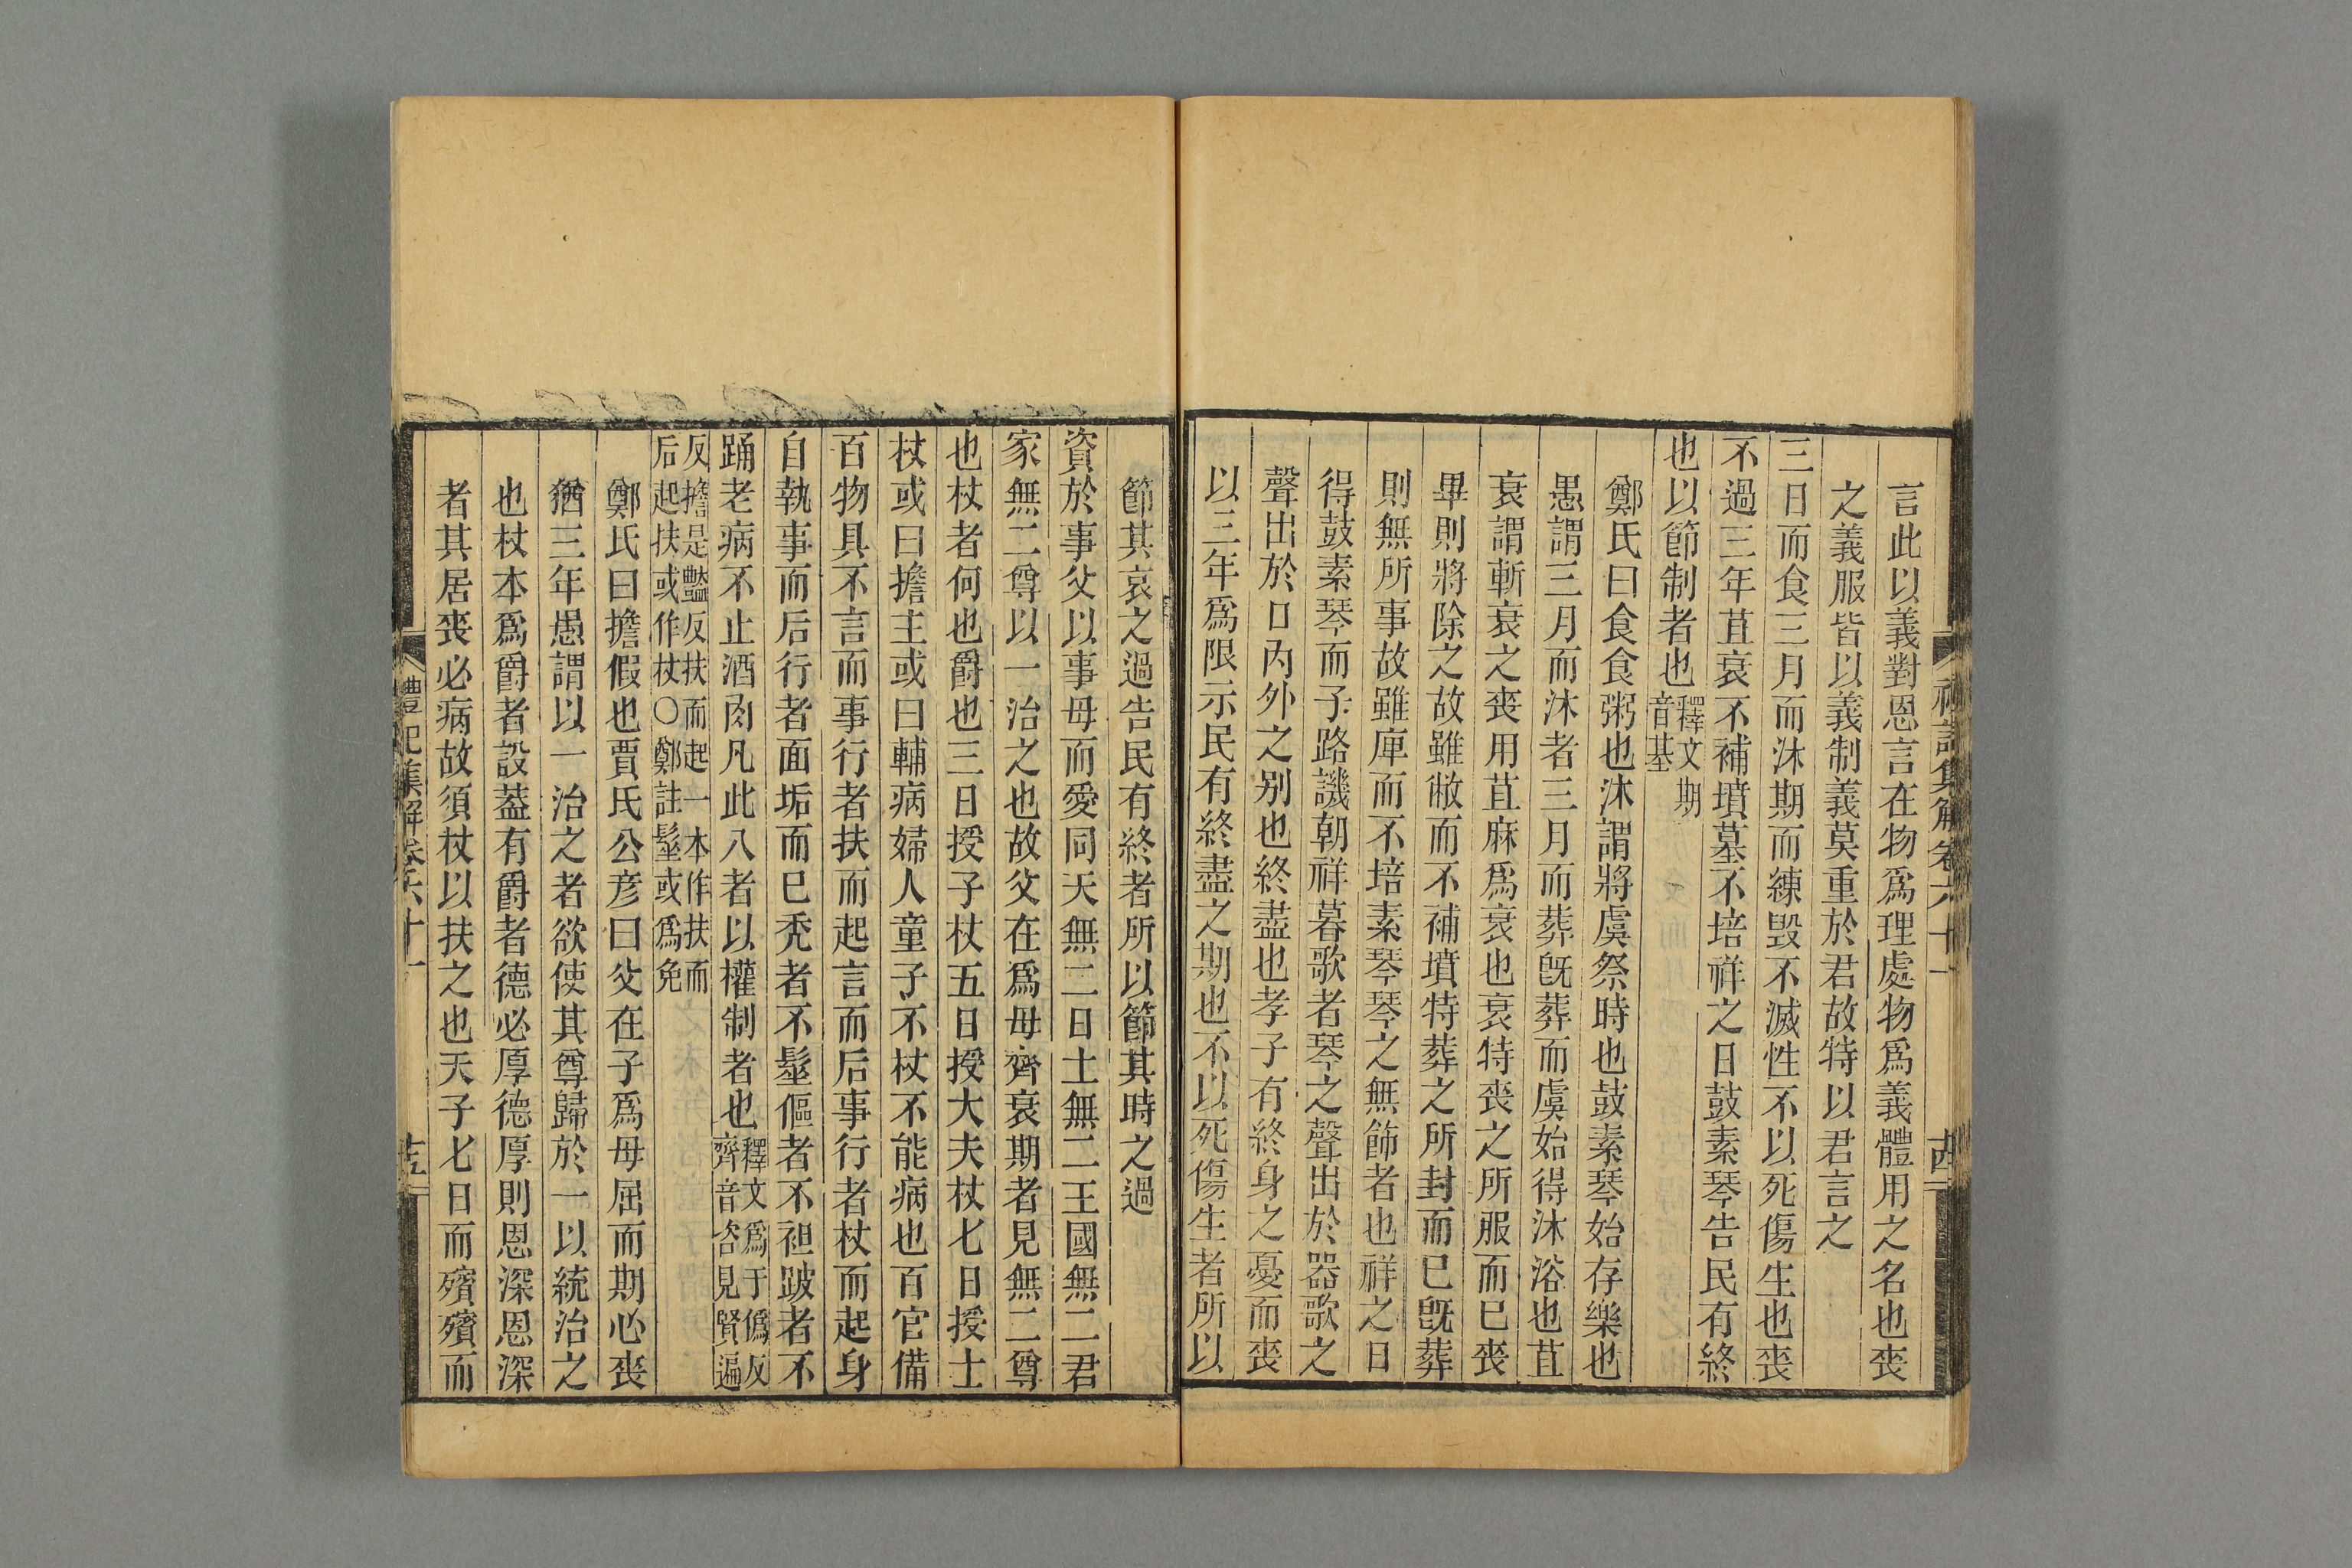 言此以義對恩言在物爲理處物爲義體用之名也喪
之義服皆以義制義莫重於君故特以君言之
三日而食三月而沐期而練毀不滅性不以死傷生也喪
不過三年苴衰不補墳墓不培祥之日鼓素琴告民有終
也以節制者也釋文期音基
鄭氏曰食食粥也沐謂將虞祭時也鼓素琴始存樂也
愚謂三月而沐者三月而葬旣葬而虞始得沐浴也苴
衰謂斬衰之喪用苴麻爲衰也衰特喪之所服而已喪
畢則將除之故雖敝而不補墳特葬之所封而已旣葬
則無所事故雖庳而不培素琴琴之無飾者也祥之日
得鼓素琴而子路譏朝祥暮歌者琴之聲出於器歌之
聲出於口內外之别也終盡也孝子有終身之憂而喪
以三年爲限示民有終盡之期也不以死傷生者所以
節其哀之過告民有終者所以節其時之過
資於事父以事母而愛同天無二日土無二王國無二君
家無二尊以一治之也故父在爲母齊衰期者見無二尊
也杖者何也爵也三日授子杖五日授大夫杖七日授士
杖或曰擔主或曰輔病婦人童子不杖不能病也百官備
百物具不言而事行者扶而起言而后事行者杖而起身
自執事而后行者面垢而已禿者不髽傴者不袒跛者不
踊老病不止酒肉凡此八者以權制者也釋文爲于僞反齊音咨見賢遍
反擔是豔反扶而起一本作扶而后起扶或作杖○鄭註髽或爲免
鄭氏曰擔假也賈氏公彦曰父在子爲母屈而期心喪
猶三年愚謂以一治之者欲使其尊歸於一以統治之
也杖本爲爵者設葢有爵者德必厚德厚則恩深恩深
者其居喪必病故須杖以扶之也天子七日而殯殯而
禮記集解卷六十一